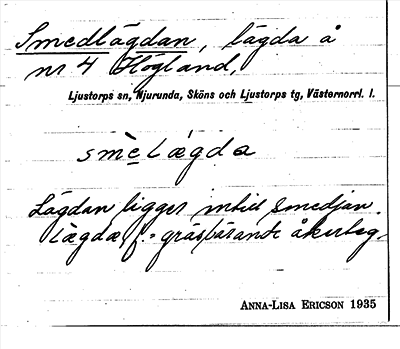 Smedlägdan, lägda å
nr 4 Högland,
Ljustorps sn, Njurunda, Sköns och Ljustorps tg, Västernorrl. l.
smèlægda
Lägdan ligger intill smedjan.
lægda f. = gräsbärande åkerteg.
ANNA-LISA ERICSON 1935